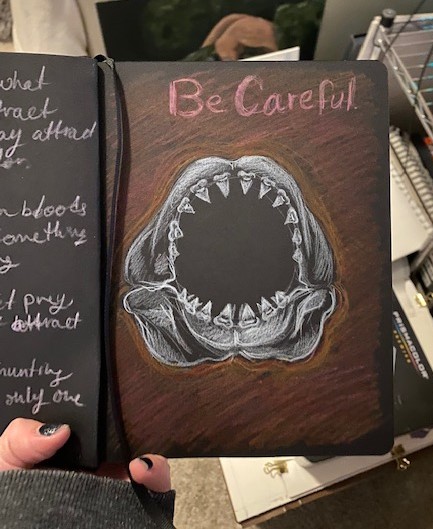 what
tract
ay attrad
on
n bloods
something
g
t prey
attract
hunting
only one
Be Careful
PRISMACOLOR